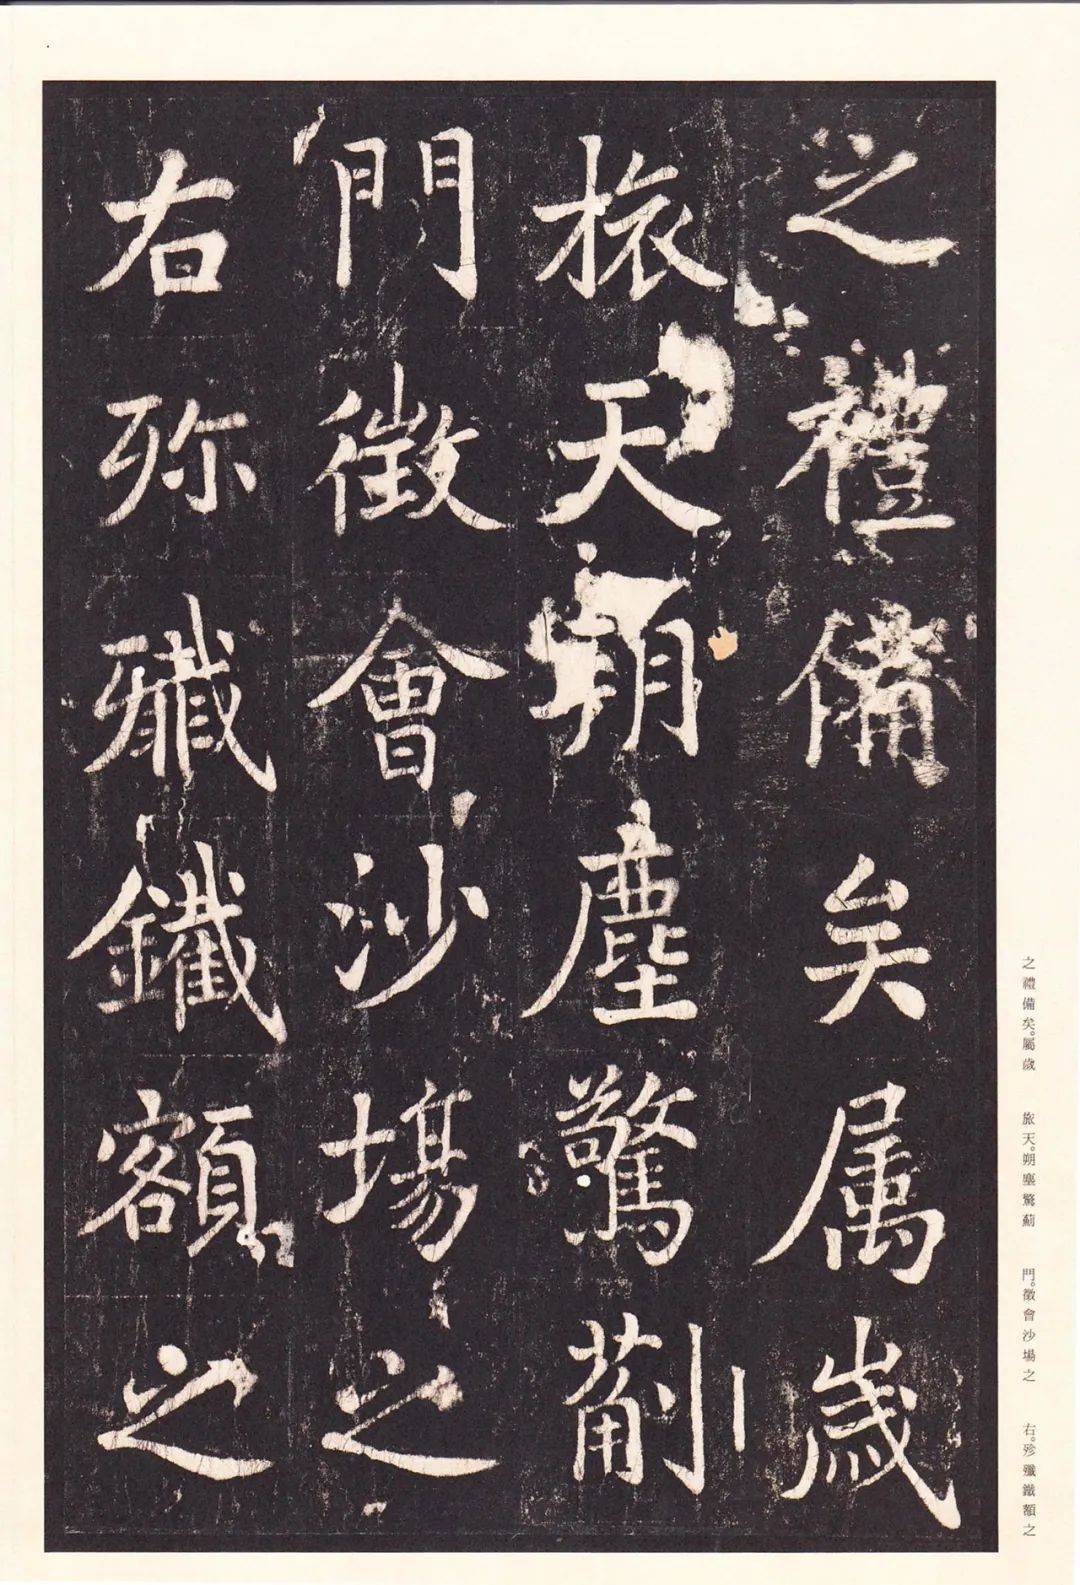 之禮備矣属歲
旅天朔塵驚薊
門徵會沙場之
右殄殲鐵額之
之禮備矣。屬歲　旅天。朔塵驚薊　門。徵會沙場之　右。殄殲鐵額之